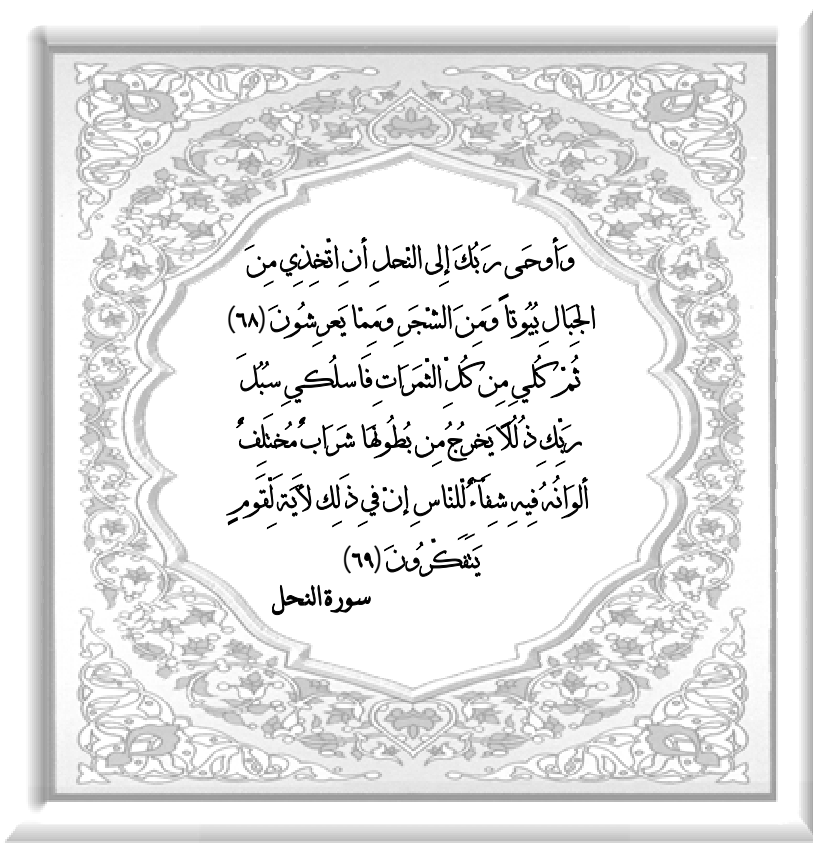 وَأَوحَى رَبُّكَ إِلى النَّحلِ أَنِ اتَّخِذِي مِنَ
الجِبَالِ بُيُوتاً وَمِنَ الشَّجَرِ وَمِمَّا يَعرِشُونَ (٦٨)
ثُمَّ كُلِي مِن كُلِّ الثَّمَرَاتِ فَاسلُكِي سُبُلَ
رَبِّكِ ذُلُلًا يَخرُجُ مِن بُطُونِهَا شَرَابٌ مُّختَلِفٌ
أَلوَانُهُ فِيهِ شِفَآءٌ لِّلنَّاسِ إِنَّ فِي ذَلِكَ لآَيَةً لِّقَومٍ
يَتَفَكَّرُونَ (٦٩)
سورة النحل